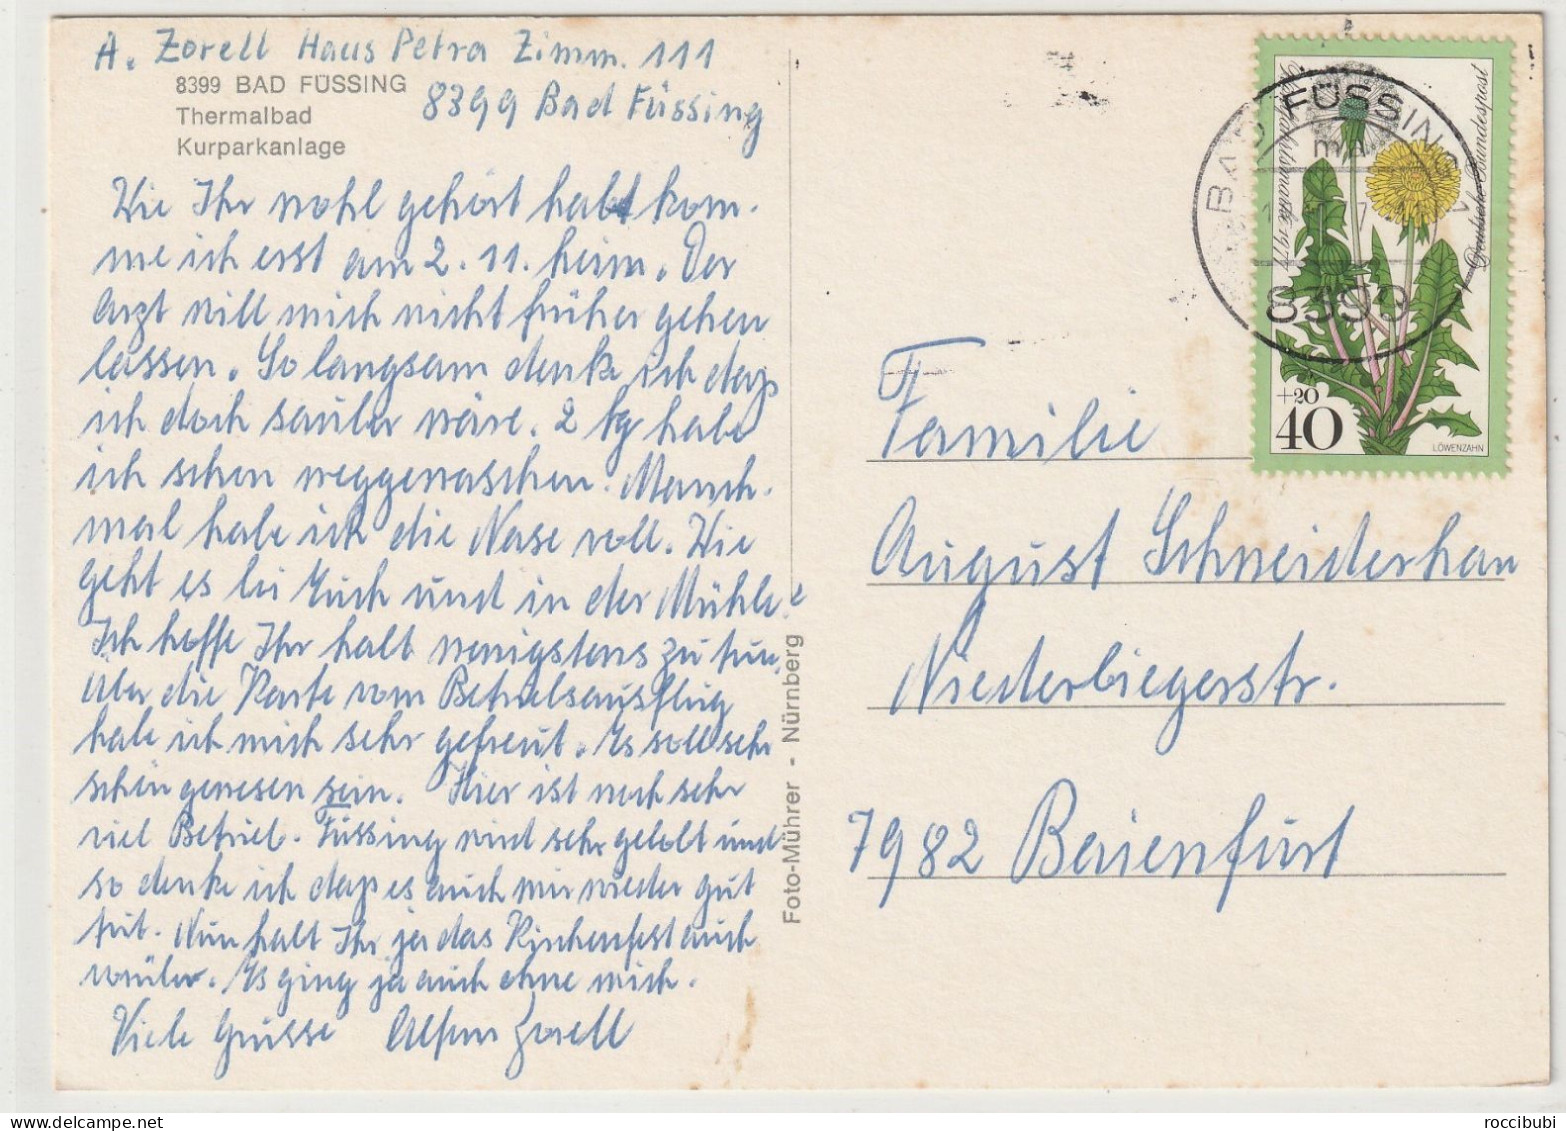 A. Zorell Haus Petra Zimm. 111
8399 BAD FÜSSING
8399 Bad Füssing
Thermalbad
Kurparkanlage
Wie Ihr wohl gehört habt kom-
me ich erst am 2. 11. heim. Der
Arzt will mich nicht früher gehen
lassen. So langsam denke ich daß
ich doch sauber wäre. 2 kg habe
ich schon weggewaschen. Manch-
mal habe ich die Nase voll. Wie
geht es bei Euch und in der Mühle?
Ich hoffe Ihr habt wenigstens zu tun.
Über die Karte vom Betriebsausflug
habe ich mich sehr gefreut. Es soll sehr
schön gewesen sein. Hier ist noch sehr
viel Betrieb. Füssing wird sehr gelobt und
so denke ich daß es auch mir wieder gut
tut. Nun habt Ihr ja das Kirchenfest auch
vorüber. Es ging ja auch ohne mich.
Viele Grüsse Zorell
Foto-Mührer - Nürnberg
BAD FÜSSING
8399
Wohlfahrtsmarke 1977
Deutsche Bundespost
+20
40
LÖWENZAHN
Familie
August Schneiderhan
Niederbiegerstr.
7982 Baienfurt
roccibubi